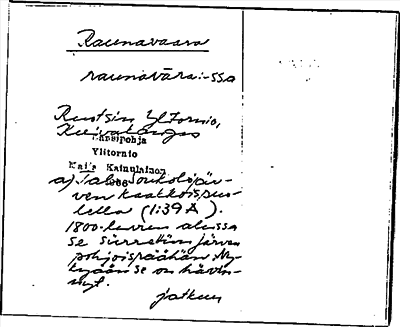 Raunavaara
raunavāra:-ssa
Ruotsin Ylitornio,
Kuivakangas
Länsipohja
Ylitornio
Kaija Kainulainen
a) Talo Jouholöjär-
ven kaakkoispuo-
lella (1:39 A).
1800-luvun alussa
se siirrettiin järven
pohjoispäähän. Ny-
kyään se on hävin-
nyt.
jatkuu